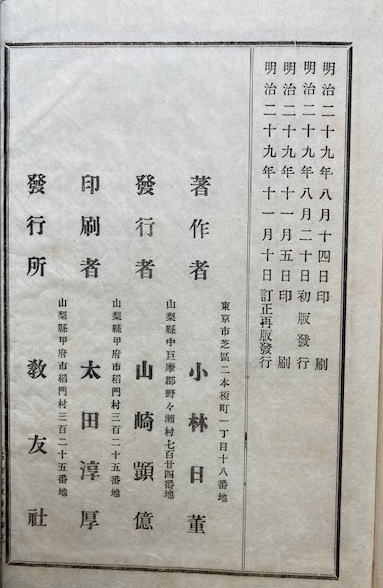 明治二十九年八月十四日印刷
明治二十九年八月二十日初版發行
明治二十九年十一月五日印刷
明治二十九年十一月十日訂正再版發行
東京市芝區二本榎町一丁目十八番地
著作者 小林日董
山梨縣中巨摩郡野々瀬村七百廿四番地
發行者 山崎顗億
山梨縣甲府市稻門村三百二十五番地
印刷者 太田淳厚
山梨縣甲府市稻門村三百二十五番地
發行所 教友社